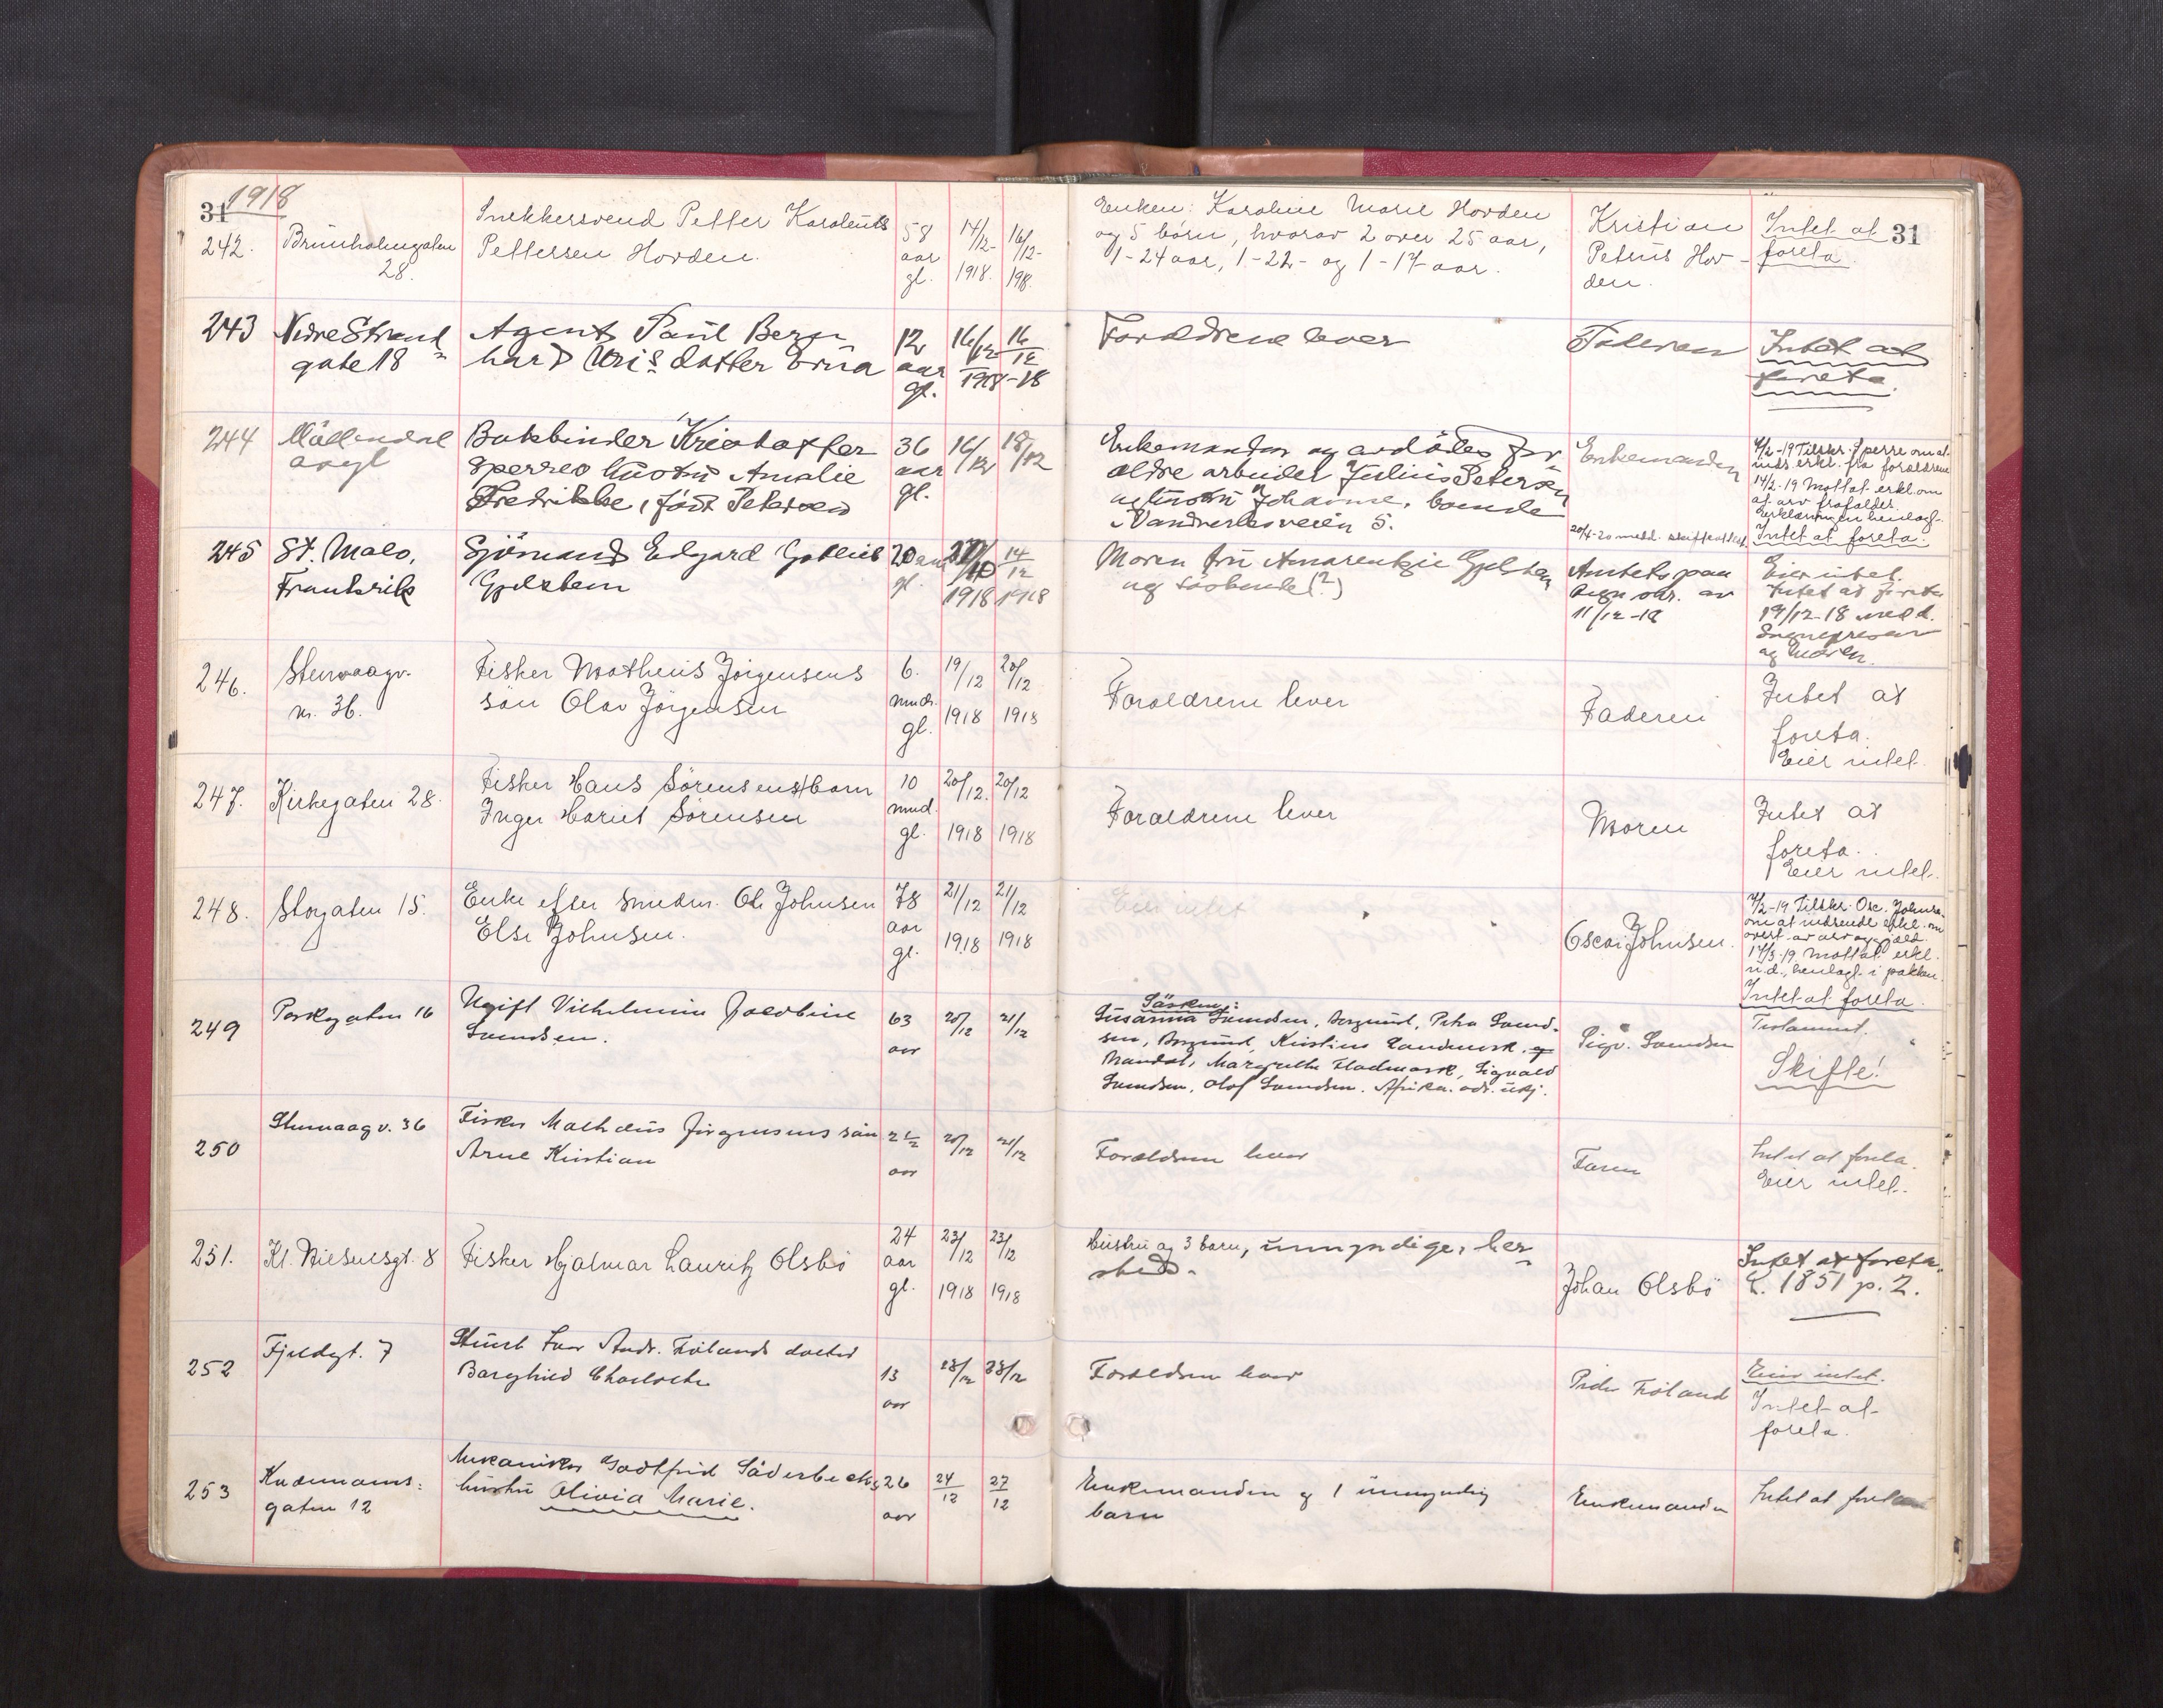 31 1918
242. Brunholmgaten 28.
Snekkersvend Petter Karolenus
Pettersen Hovden.
58 aar gl.
14/12- 1918.
16/12- 1918.
Enken: Karoline Marie Hovden
og 5 børn, hvorav 2 over 25 aar,
1-24 aar, 1-22- og 1-17 aar.
Kristian
Petrus Hov-
den.
Intet at
foreta.
31
243 Nedre Strand
gate 18
Agent Paul Bern
hard Uris datter Erna
12 aar gl.
16/12 1918
16/12 -18
Forældrene lever
Faderen
Intet at
foreta.
244 Møllendal
Bokbinder Kristoffer
Sperres hustru Amalie
Fredrikke, født Petersen
36 aar gl.
16/12
18/12
Enkemanden og avdødes for
ældre arbeider Julius Petersen
og hustru Johanne, boende
Vandverksveien 5.
Enkemanden
4/2-19 Tilskr. Sperre om at
inds. erkl. fra forældrene
14/2-19 Mottat erkl. om
at arv frafalder.
Erklæringen henlagt.
Intet at foreta.
245 St. Malo,
Frankrik
Sjømand Edgard Gotlieb
Gjelsten
20 aar gl.
27/10 1918
14/12 1918
Moren fru Amarentze Gjelsten
og søskende (?)
Amtets paa
tegn. skr. av
11/12-18
Eier intet.
Intet at foreta
19/12-18 medd.
Sognepresten
og Moren.
246. Stenvaagv.
nr. 36.
Fisker Matheus Jørgensens
søn Olav Jørgensen
6. mndr. gl.
19/12 1918
20/12 1918
Forældrene lever
Faderen
Intet at
foreta.
Eier intet.
247. Kirkegaten 28.
Fisker Hans Sørensens barn
Inger Harriet Sørensen
10 mnd. gl.
20/12. 1918
20/12 1918
Forældrene lever
Moren
Intet at
foreta.
Eier intet.
248. Storgaten 15.
Enke efter smedm. Ole Johnsen
Else Johnsen.
78 aar gl.
21/12 1918
21/12 1918
Eier intet
Oscar Johnsen.
4/2-19 Tilskr. Osc. Johnsen
om at indsende erkl. om
overt. av arv og gjæld.
17/3-19 Mottat erkl.
n.d., henlagt i pakken.
Intet at foreta.
249 Parkgaten 16
Ugift Vilhelmine Jacobine
Svendsen.
63 aar
20/12
21/12
Søsken:
Susanna Svendsen, Borgund, Petra Svend-
sen, Borgund, Kristine Landmark, og
Mandal, Margrethe Fladmark, Sigvald
Svendsen, Olof Svendsen. Afrika. adr. ukj.
Sigv. Svendsen
Testament.
Skifte!
250 Stenvaagv. 36
Fisker Mathæus Jørgensens søn
Arne Kristian
2 1/2 aar
20/12
21/12
Forældrene lever
Faren
Intet at foreta.
Eier intet.
251. Kl. Nielsensgt. 8
Fisker Hjalmar Lauritz Olsbø
24 aar gl.
23/12 1918
23/12 1918
Hustru og 3 barn, umyndige, her
sted.
Johan Olsbø
Intet at foreta.
L. 1851 p. 2.
252 Fjeldgt. 7
Ivar Andr. Følands datter
Borghild Charlotte
13 aar
23/12
23/12
Forældrene lever
Peder Føland
Eier intet.
Intet at
foreta.
253
gaten 12
Mekaniker Godtfrid Söderbecks
hustru Olivia Marie.
26 aar
24/12
27/12
Enkemanden og 1 umyndig
barn
Enkemanden
Intet at foreta